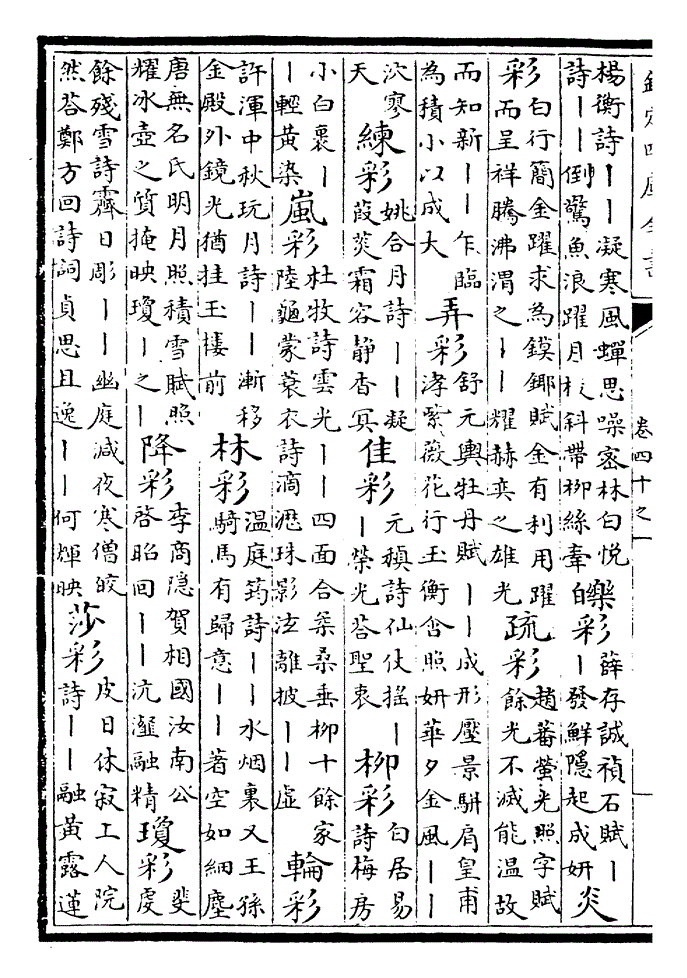 欽定四庫全書
卷四十之一
楊衡詩丨丨凝寒風蟬思噪密林白悅
詩丨丨倒驚魚浪躍月枝斜帶柳絲牽
皪彩
薛存誠禎石賦丨
丨發鮮隱起成妍
炎
彩
白行簡金躍求為鏌鋣賦金有利用躍
而呈祥騰沸渭之丨丨耀赫奕之雄光
疏彩
趙蕃螢光照字賦
餘光不滅能温故
而知新丨丨乍臨
為積小以成大
弄彩
舒元輿牡丹賦丨丨成形壓景駢肩皇甫
湋紫薇花行玉衡含照妍華夕金風丨丨
泬寥
天
練彩
姚合月詩丨丨凝
葭菼霜容静杳冥
佳彩
元稹詩仙仗摇丨
丨榮光答聖衷
柳彩
白居易
詩梅房
小白裹丨
丨輕黃染
嵐彩
杜牧詩雲光丨丨四面合柔桑垂柳十餘家
陸龜蒙蓑衣詩滴瀝珠影泫離披丨丨虛
輪彩
許渾中秋玩月詩丨丨漸移
金殿外鏡光猶挂玉樓前
林彩
温庭筠詩丨丨水烟裏又王孫
騎馬有歸意丨丨著空如細塵
唐無名氏明月照積雪賦照
耀冰壺之質掩映瓊丨之丨
降彩
李商隱賀相國汝南公
啓昭回丨丨沆瀣融精
瓊彩
裴
虔
餘殘雪詩霽日彫丨丨幽庭減夜寒僧皎
然答鄭方回詩詞貞思且逸丨丨何輝映
莎彩
皮日休寂上人院
詩丨丨融黃露蓮